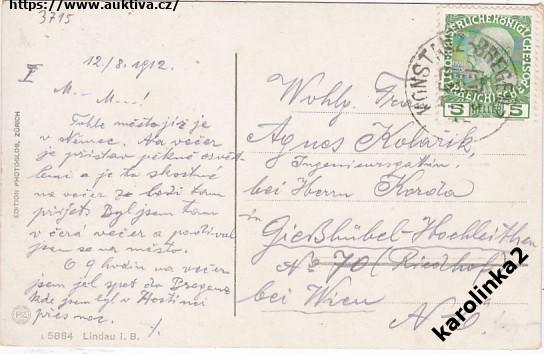 https://www.auktiva.cz/
3715
12/8. 1912.
I
M... M...!
Tohle město již je
v Němec. Na večer
je přístav pěkně osvět-
lení a je to skostné
na večer ze lodi tam
přijet. Byl jsem tam
v čera večer a podíval
jsem se na město.
O 9 hodin na večer
jsem jel zpět do Bregenz
kde jsem byl v Hostinci
přes noc.
EDITION PHOTOGLOB, ZÜRICH
PZ
5884 Lindau i. B.
KONSTANZ-BREGENZ
KAISERLICHE KÖNIGLICHE
ÖSTERREICHISCHE POST
5 HELLER 5
Wohlg. Frau
Agnes Kolařik
Ingenieursgattin
bei Herrn Korda
in
Gießhübel-Hochleithen
No 70 (Riedhof)
bei Wien
N.Ö.
karolinka2